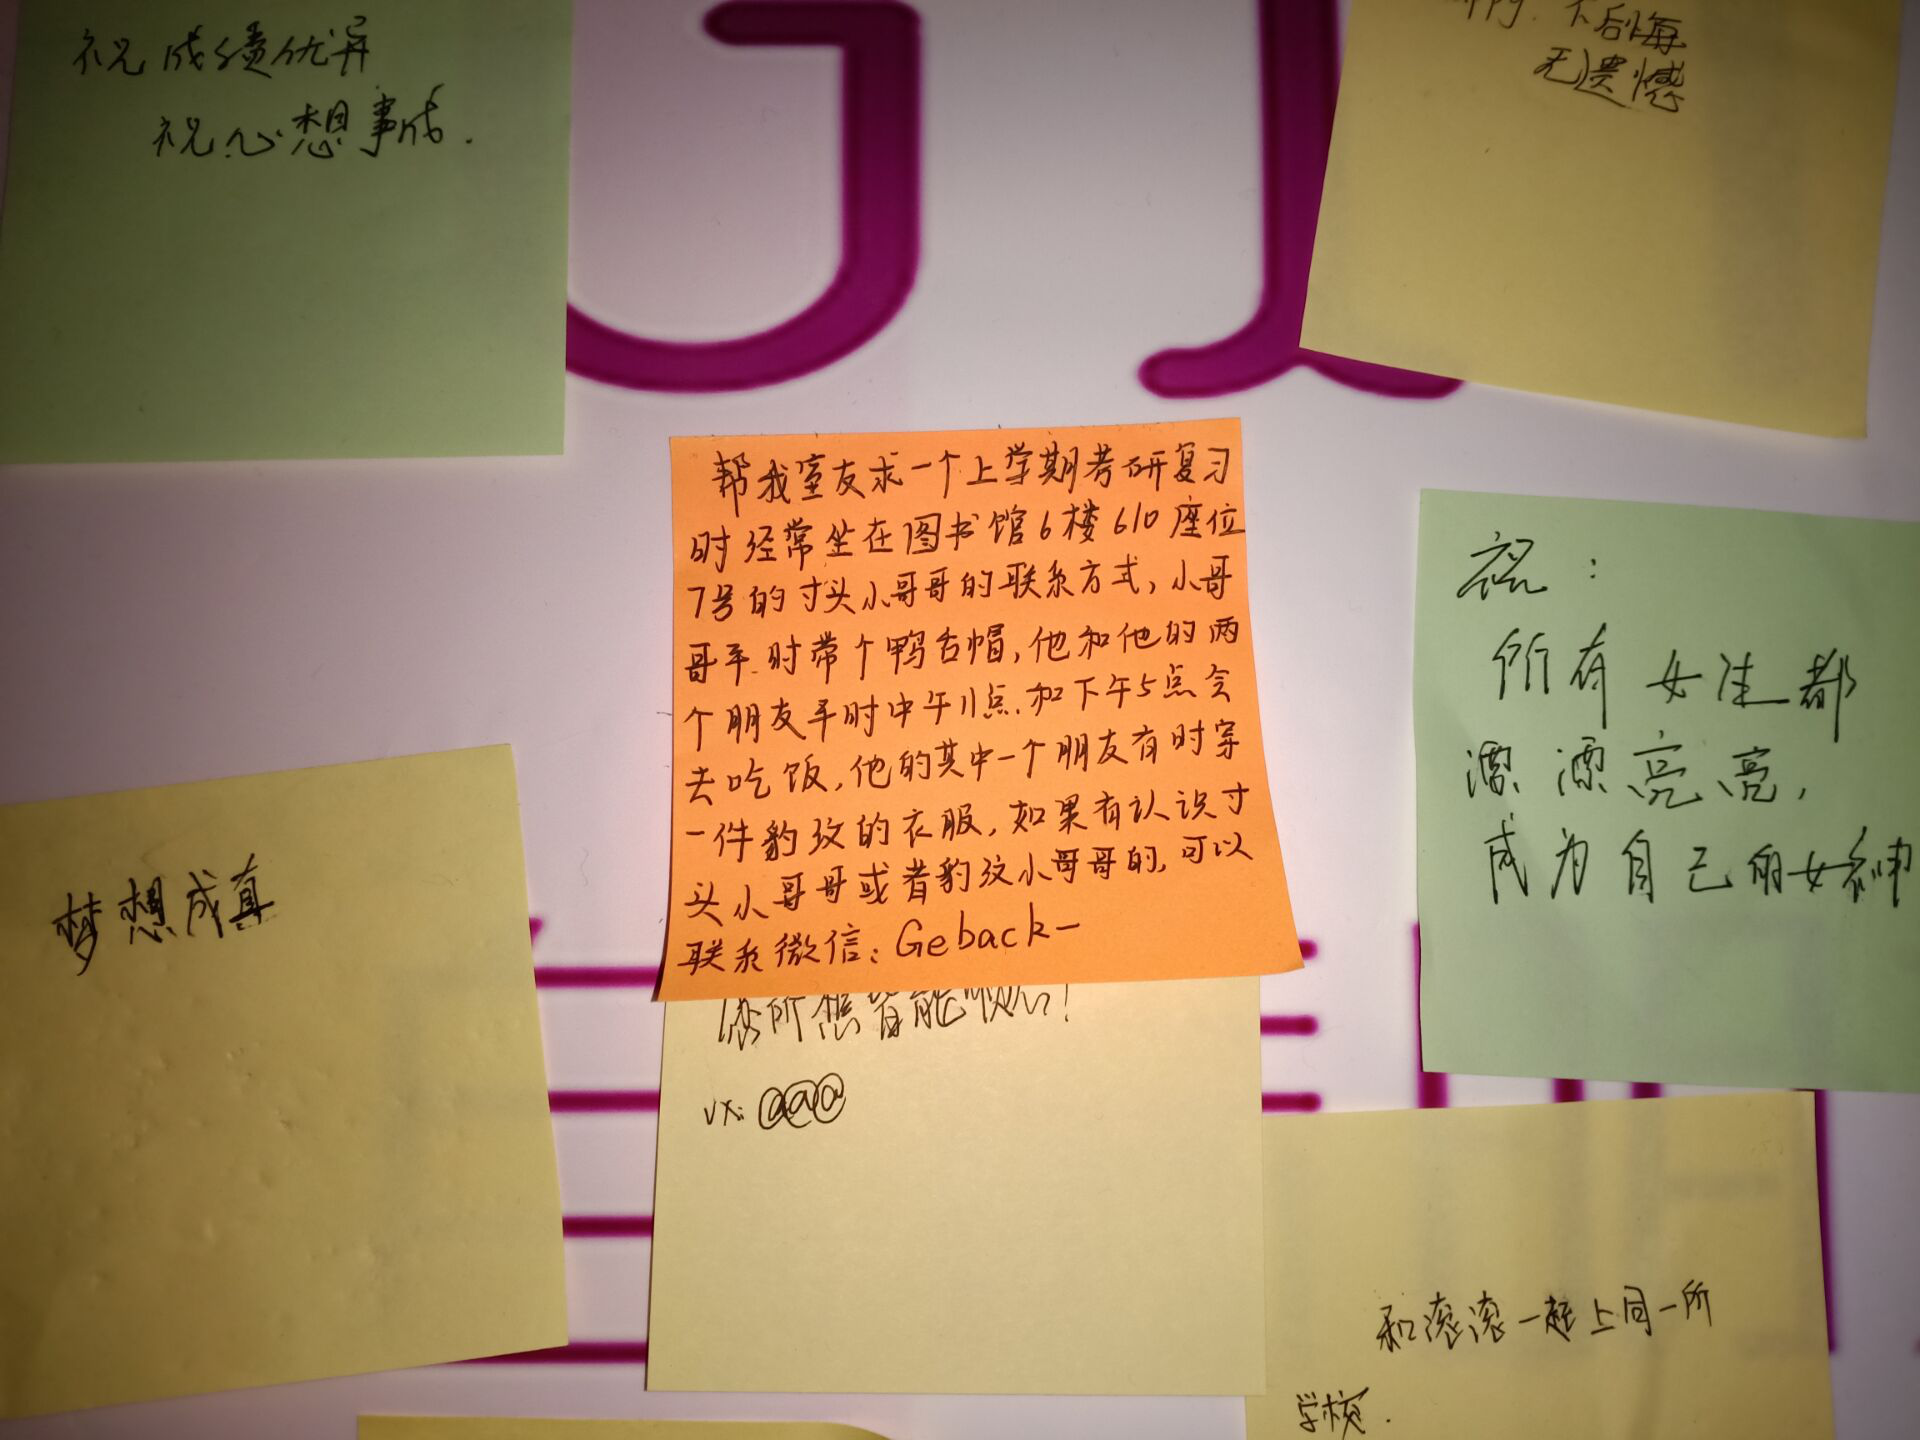 祝成绩优异
祝心想事成.
不后悔
无遗憾
帮我室友求一个上学期考研复习
时经常坐在图书馆6楼610座位
7号的寸头小哥哥的联系方式,小哥
哥平时带个鸭舌帽,他和他的两
个朋友平时中午11点.和下午5点会
去吃饭,他的其中一个朋友有时穿
一件豹纹的衣服,如果有认识寸
头小哥哥或者豹纹小哥哥的,可以
联系微信:Geback一
祝:
所有女生都
漂漂亮亮,
成为自己的女神
梦想成真
所想皆能
vx:@@@
和滚滚一起上同一所
学校.